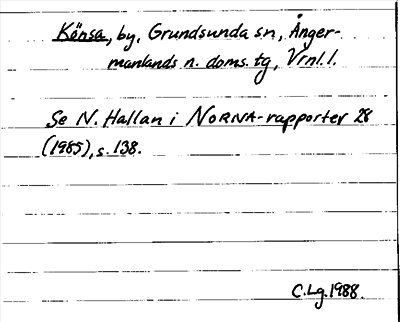 Könsa, by, Grundsunda sn, Ånger-
manlands n. doms. tg, Vrnl. l.
Se N. Hallan i NORNA-rapporter 28
(1985), s. 138.
C. Lg. 1988.